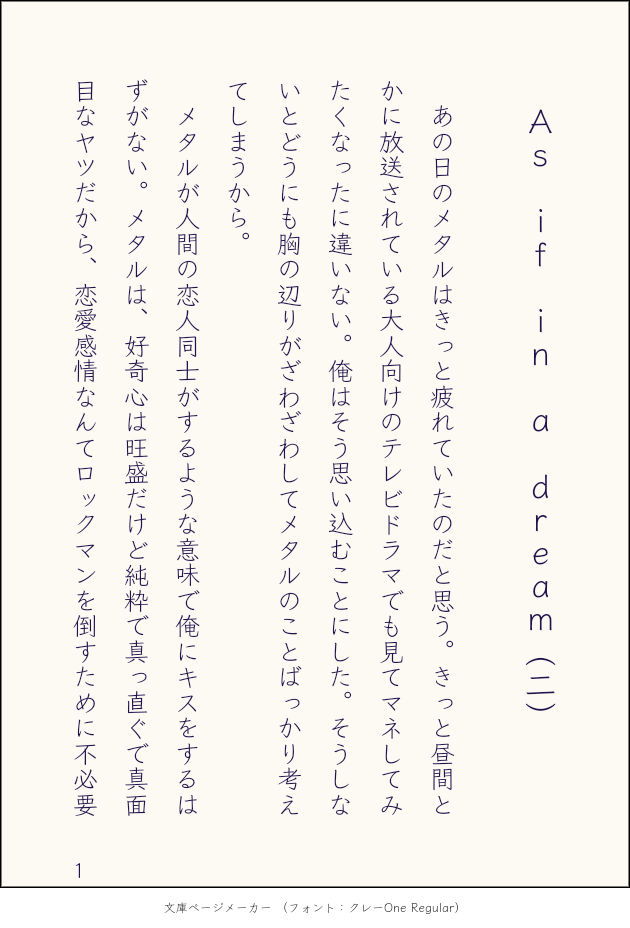 As if in a dream(二)
あの日のメタルはきっと疲れていたのだと思う。きっと昼間と
かに放送されている大人向けのテレビドラマでも見てマネしてみ
たくなったに違いない。俺はそう思い込むことにした。そうしな
いとどうにも胸の辺りがざわざわしてメタルのことばっかり考え
てしまうから。
メタルが人間の恋人同士がするような意味で俺にキスをするは
ずがない。メタルは、好奇心は旺盛だけど純粋で真っ直ぐで真面
目なヤツだから、恋愛感情なんてロックマンを倒すために不必要
1
文庫ページメーカー （フォント：クレーOne Regular）